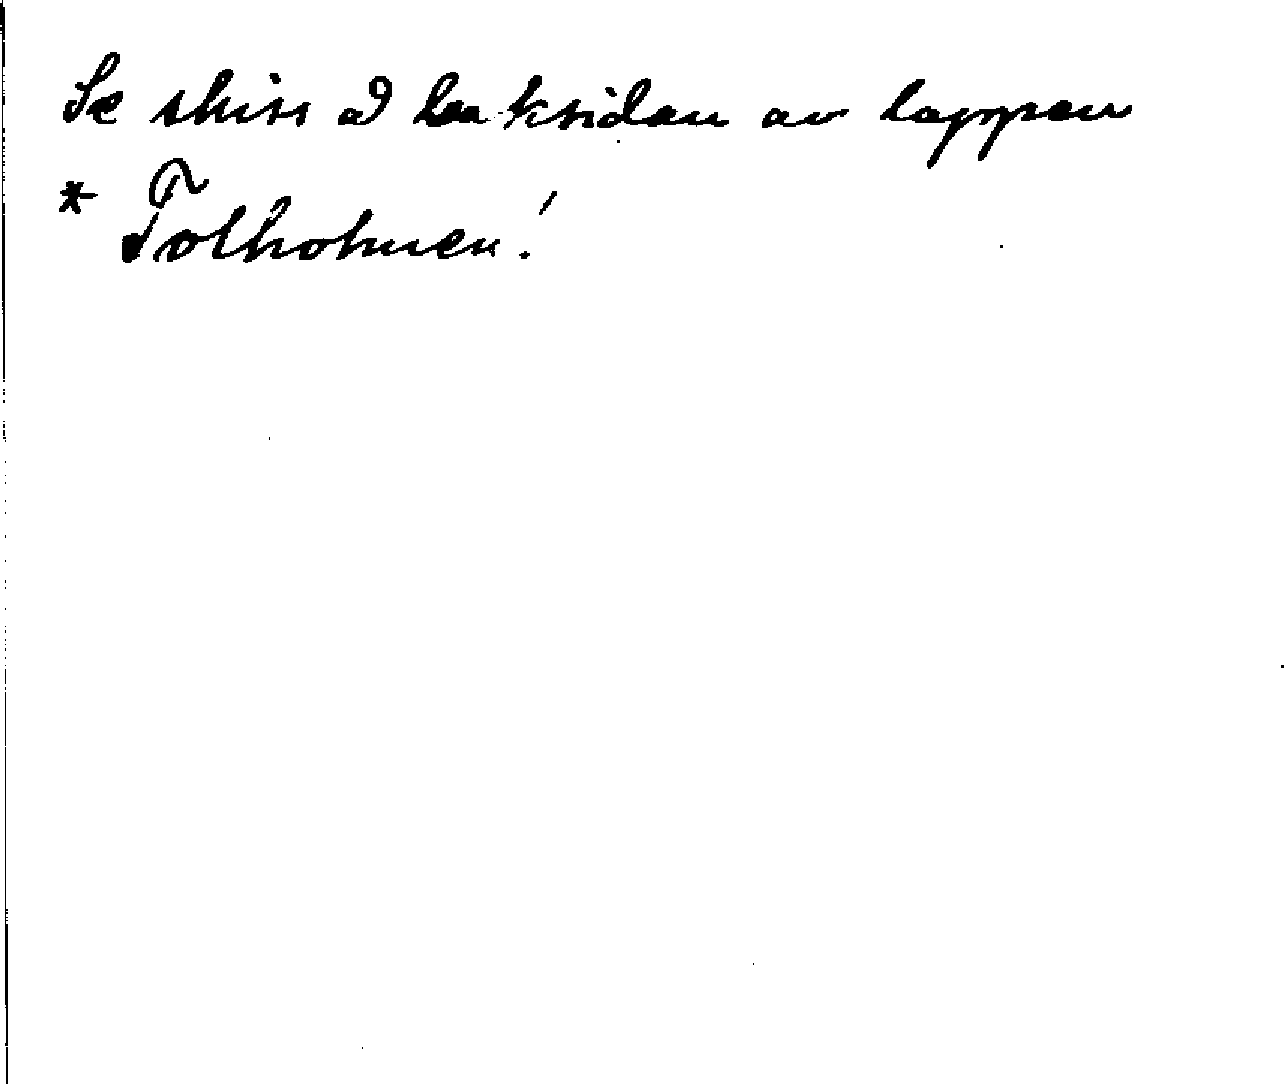 Se skiss å baksidan av lappen
* Tolholmen!